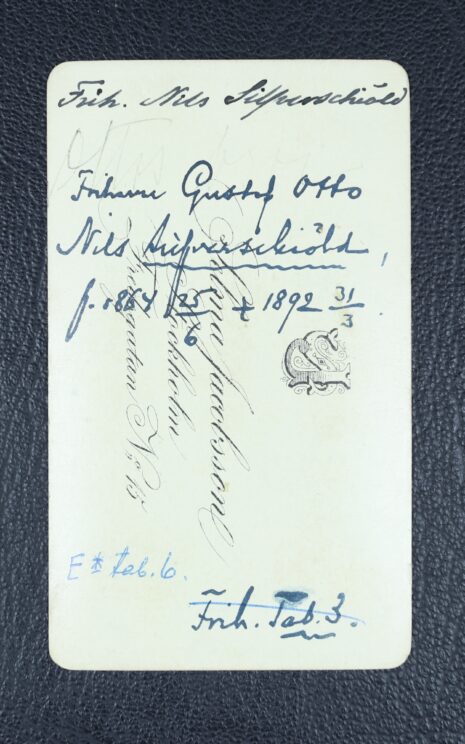 Frih. Nils Silfverschiöld
Friherre Gustaf Otto
Nils Silfverschiöld,
f. 1864 25/6 + 1892 31/3.
Selma Jacobsson
Stockholm
Fredsgatan No 15
E* tab. 6.
Frih. Tab. 3.